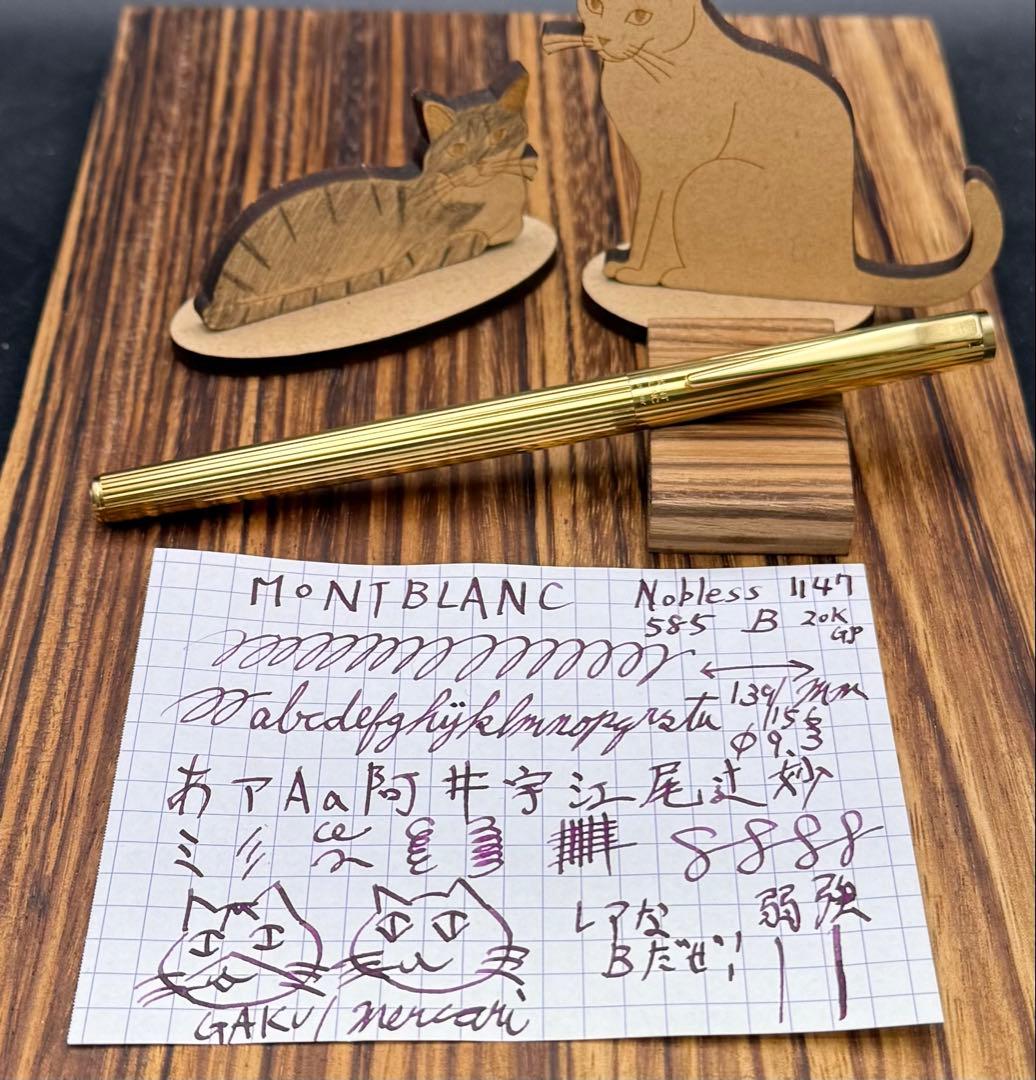 MONTBLANC
Nobless 1147
585 B 20K
GP
139/ mm
abcdefghijklmnopqrstu
φ9.3
あ ア A a 阿 井 宇 江 尾 辻 妙
8 8 8 8
レアな
Bだぜ!
弱 強
GAKU/mercari